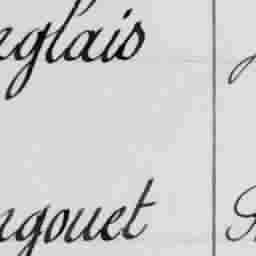 nglais
ngouet